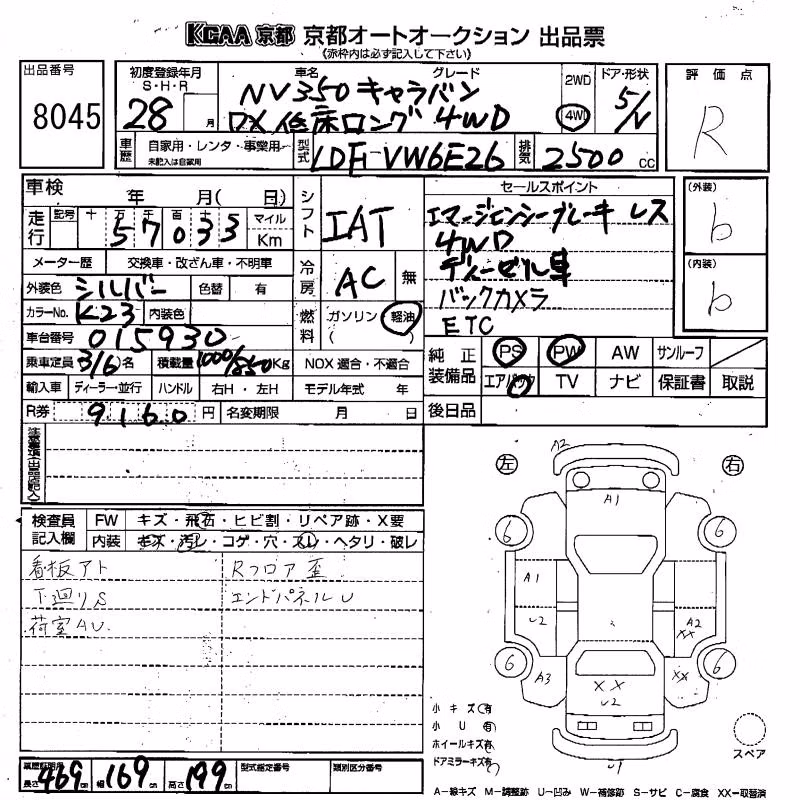 KCAA 京都 京都オートオークション 出品票
(赤枠内は必ず記入して下さい)
出品番号 8045
初度登録年月 S・H・R 28 月
車名 グレード
NV350キャラバン
DX 低床ロング 4WD
2WD 4WD
ドア・形状 5/V
評価点 R
車歴 自家用・レンタ・事業用
未記入は自家用
型式 LDF-VW6E26
排気 2500 CC
車検 年 月( 日)
走行 記号 十 万 千 百 十 マイル Km
57033
メーター歴 交換車・改ざん車・不明車
外装色 シルバー 色替 有
カラーNo. K23 内装色
車台番号 015930
乗車定員 3/6名 積載量 1000/850Kg NOX 適合・不適合
輸入車 ディーラー・並行 ハンドル 右H・左H モデル年式 年
R券 9160 円 名変期限 月 日
シフト IAT
冷房 AC 無
燃料 ガソリン・軽油
( )
セールスポイント
エマージェンシーブレーキ レス
4WD
ディーゼル車
バックカメラ
ETC
(外装) b
(内装) b
純正装備品 PS PW AW サンルーフ
エアバック TV ナビ 保証書 取説
後日品
注意事項(出品店記入)
検査員記入欄 FW キズ・飛石・ヒビ割・リペア跡・X要
内装 キズ・汚レ・コゲ・穴・スレ・ヘタリ・破レ
看板アト Rフロア歪
下廻りS エンドパネルU
荷室AU.
左 右
A2
A1
6 6
A1
U2 A2 XX
6 6
A3 XX XX
U2
U1
小キズ(有)
小 U 有)
ホイールキズ(有)
ドアミラーキズ(有)
スペア
長さ 469cm 幅 169cm 高さ 199cm 型式指定番号 類別区分番号
A−線キズ M−調整跡 U−凹み W−補修跡 S−サビ C−腐食 XX−取替済